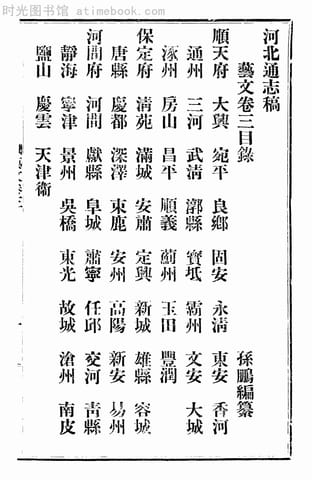 时光图书馆 - atimebook.com
河北通志稿
藝文卷三目錄
孫鵬編纂
順天府 大興 宛平 良鄉 固安 永清 東安 香河
通州 三河 武清 漷縣 寶坻 霸州 文安 大城
涿州 房山 昌平 順義 薊州 玉田 豐潤
保定府 清苑 滿城 安肅 定興 新城 雄縣 容城
唐縣 慶都 深澤 束鹿 安州 高陽 新安 易州
河間府 河間 獻縣 阜城 肅寧 任邱 交河 青縣
靜海 寧津 景州 吳橋 東光 故城 滄州 南皮
鹽山 慶雲 天津衛